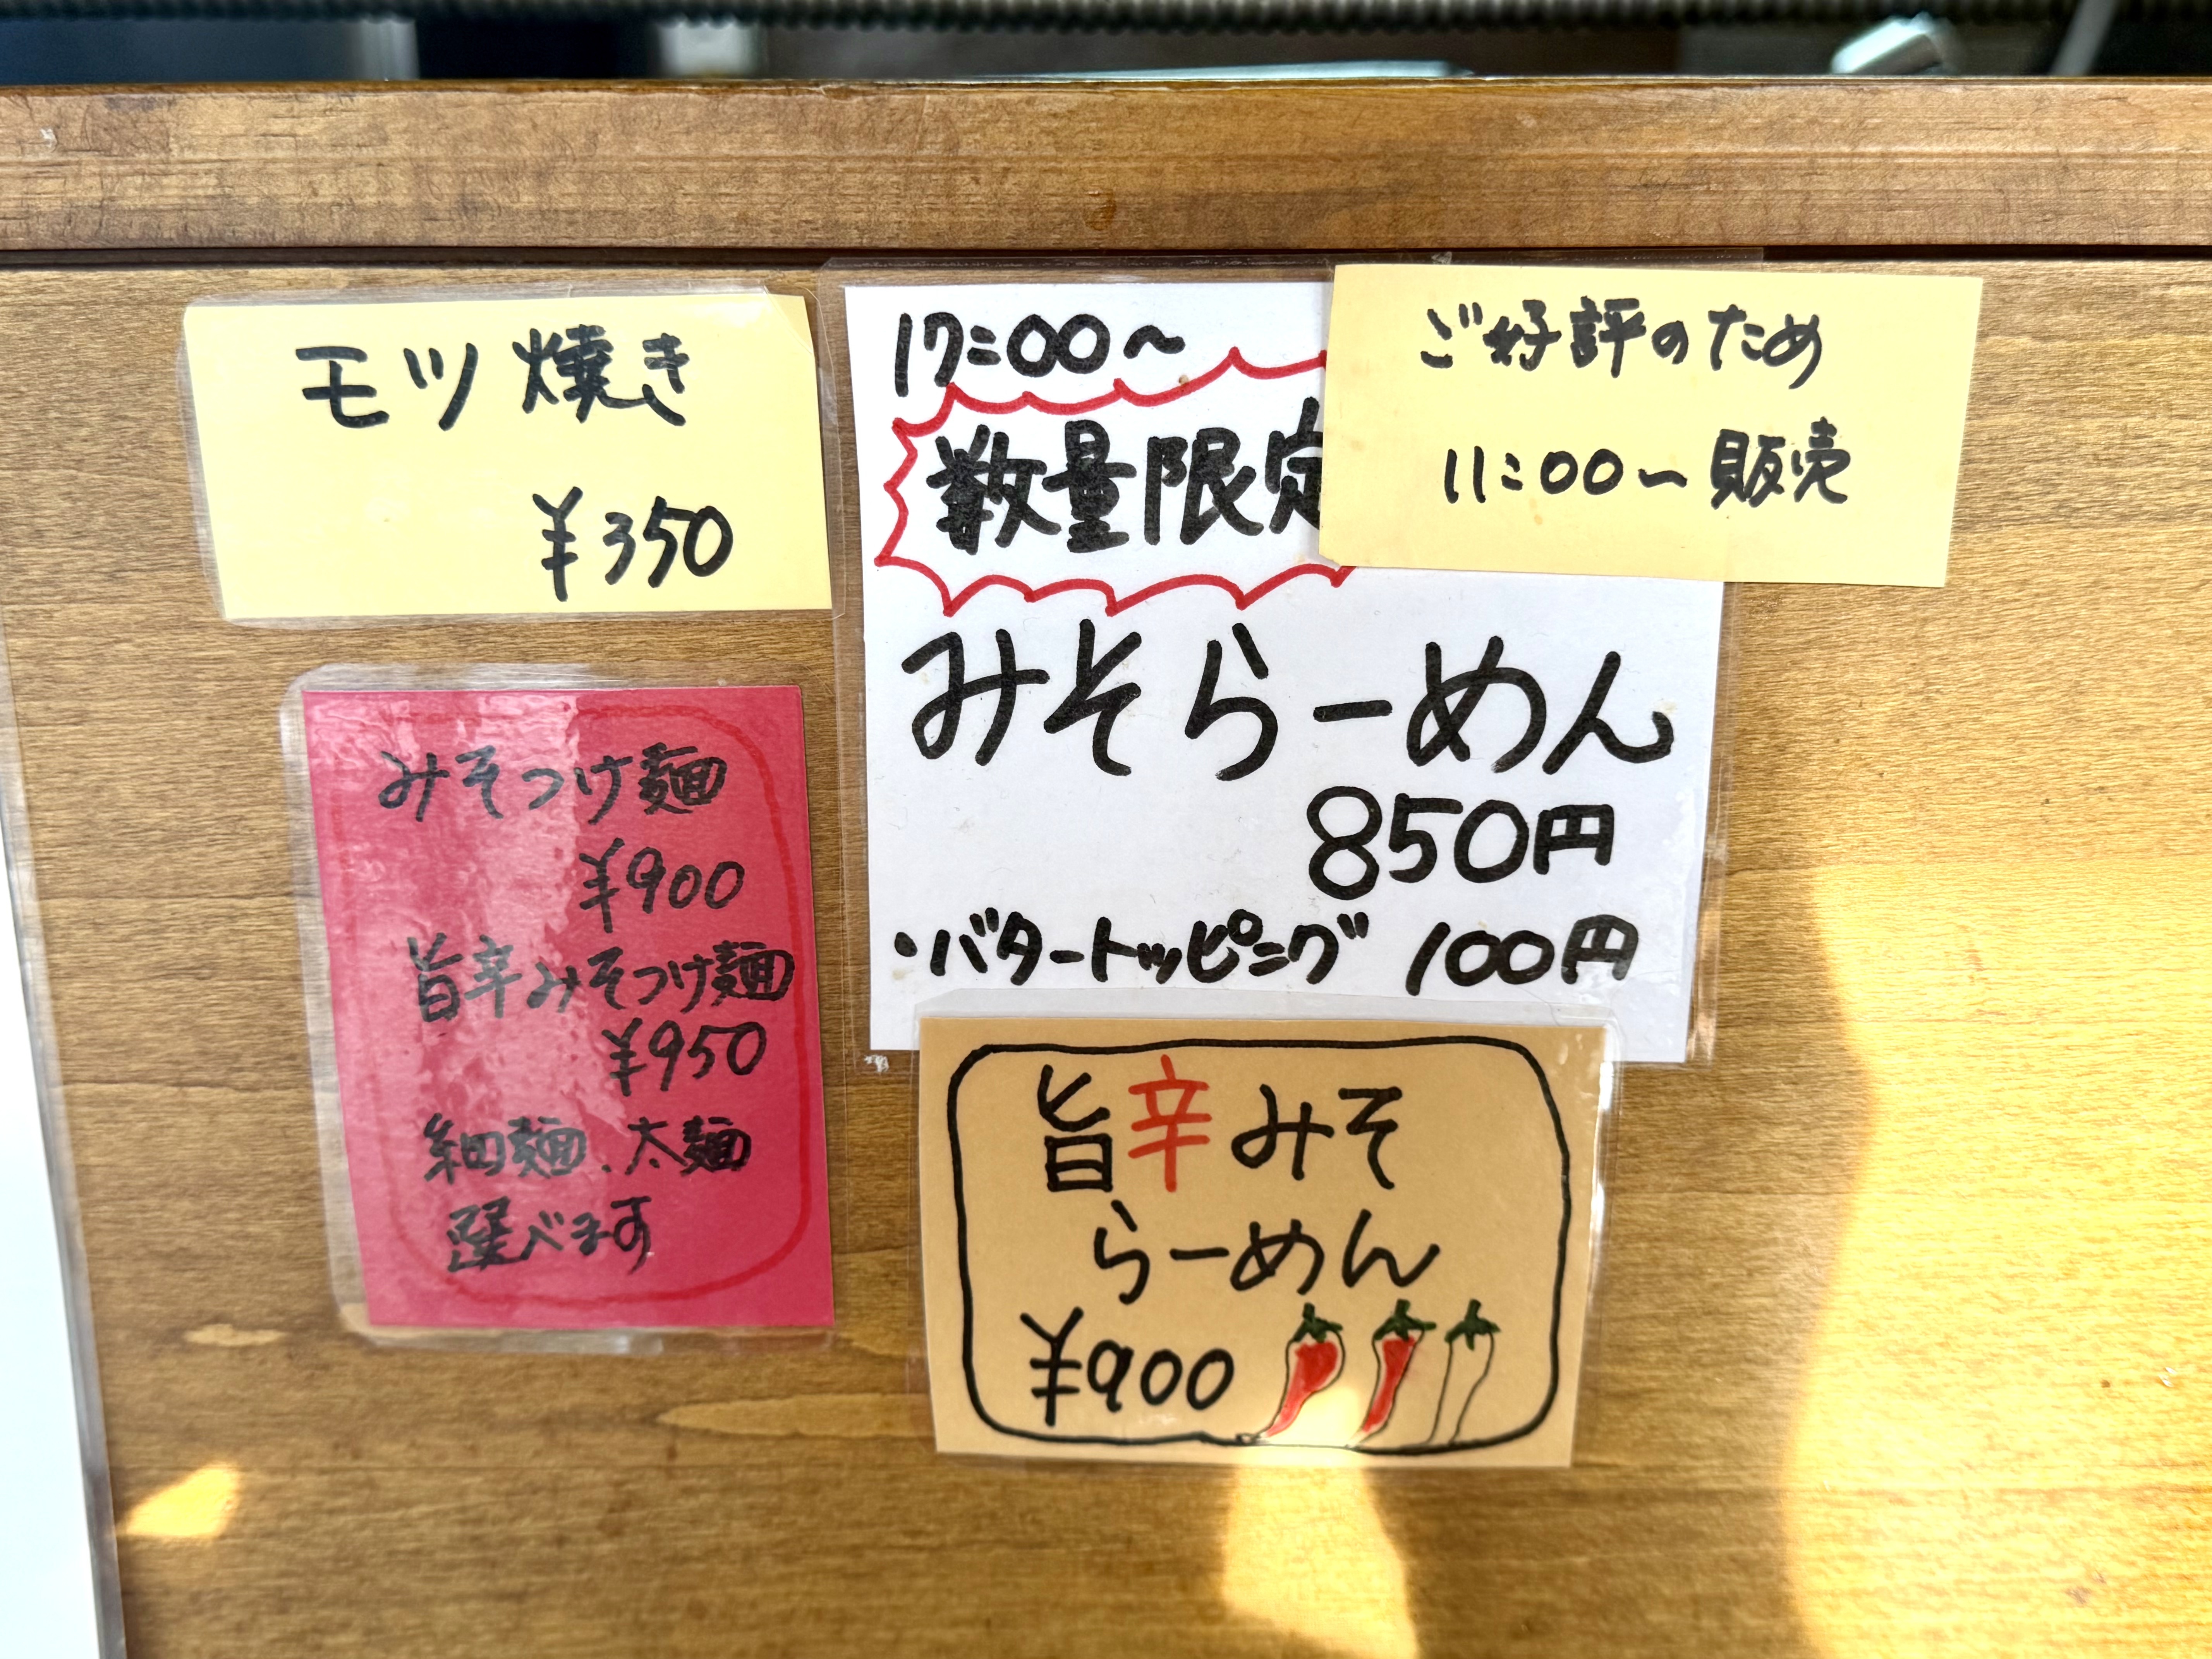 モツ焼き
¥350
17:00～
数量限定
ご好評のため
11:00～販売
みそらーめん
850円
・バタートッピング 100円
みそつけ麺
¥900
旨辛みそつけ麺
¥950
細麺、太麺
選べます
旨辛みそ
らーめん
¥900